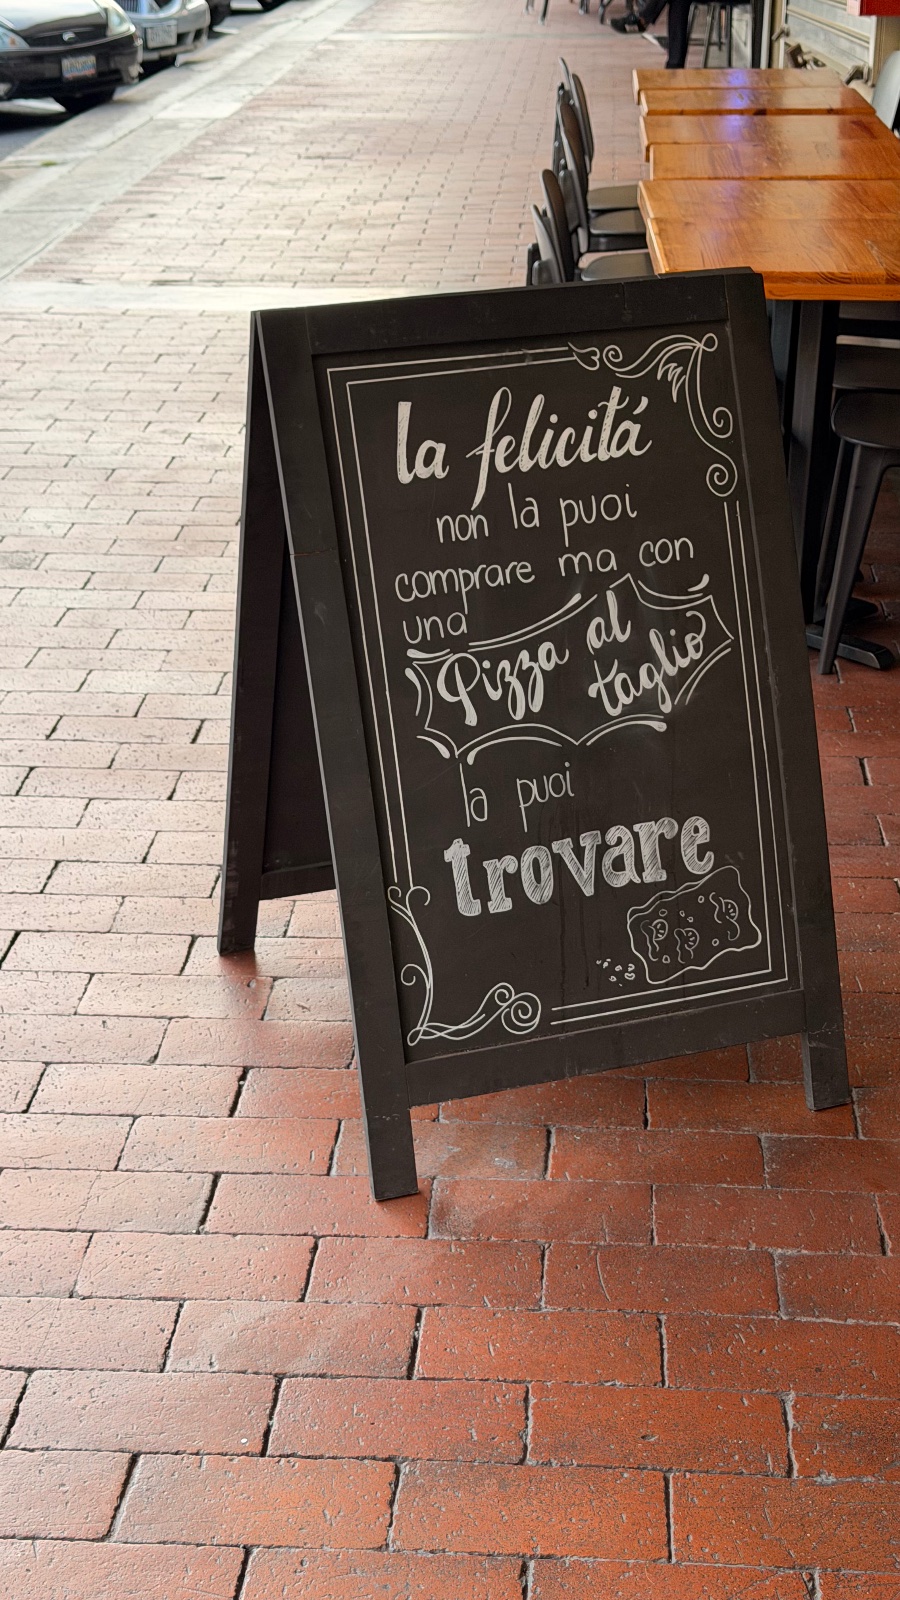 la felicitá
non la puoi
comprare ma con
una
Pizza al
taglio
la puoi
trovare